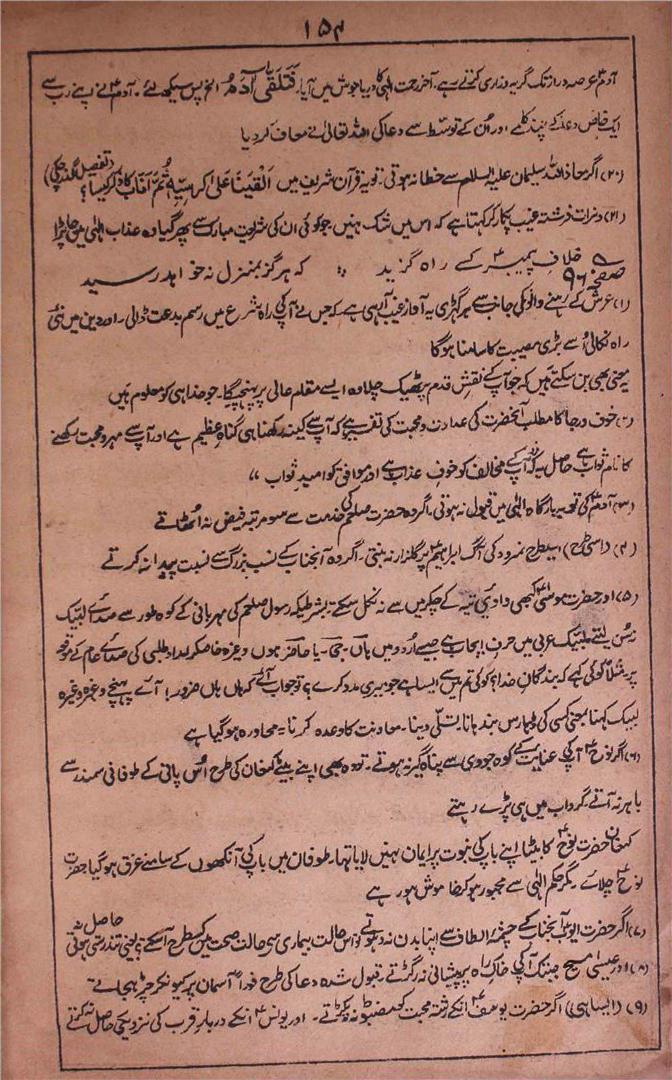 ۱۵۴
آدمؑ عرصہ دراز تک گریہ وزاری کرتے رہے۔ آخر رحمت الٰہی کا دریا جوش میں آیا۔ فَتَلَقّٰی اٰدَمُ الخ پس سیکھ لئے۔ آدمؑ نے اپنے رب سے
ایک خاص دعا کے چند کلمے اور اُن کے توسّط سے دعا کی اللہ تعالیٰ نے معاف کر دیا
(۲۰) اگر معاذ اللہ سلیمان علیہ السلام سے خطا نہ ہوتی۔ تو یہ قرآن شریف میں اَلْقَیْنَا عَلیٰ کُرْسِیِّہٖ ثُمَّ اَنَابَ کا ذکر کیسا؟ (تفصیل گذر چکی)
(۲۱) دن رات فرشتہ غیب پکار کر کہتا ہے کہ اس میں شک نہیں جو کوئی ان کی شریعت مبارک سے پھر گیا وہ عذاب الٰہی میں جا پڑا
خلاف پیمبرؐ کسے راہ گزید ؞ کہ ہرگز بمنزل نہ خواہد رسید
صفحہ ۹۶
(۱) عرش کے رہنے والوں کی جانب سے ہر گھڑی یہ آواز غیب آ رہی ہے کہ جس نے آپ کی راہ شرع میں رسم بدعت ڈالی۔ اور دین میں نئی
راہ نکالی اُسے بڑی مصیبت کا سامنا ہوگا
یہ معنی بھی بن سکتے ہیں کہ جو آپ کے نقش قدم پر ٹھیک چلا وہ ایسے مقام عالی پر پہنچے گا۔ جو خدا ہی کو معلوم ہیں
(۲) خوف و رجا کا مطلب آنحضرت کی عداوت و محبت کی تفسیر ہے کہ آپ سے کینہ رکھنا ہی گناہ عظیم ہے اور آپ سے مہر و محبت رکھنے
کا نام ثواب ہے حاصل یہ کہ آپ کے مخالف کو خوف عذاب ہے اور موافق کو امید ثواب ،،
(۳) آدمؑ کی توبہ بارگاہ الٰہی میں قبول نہ ہوتی۔ اگر وہ حضرت صلعم کی خدمت سے سو مرتبہ فیض نہ اُٹھاتے
(۴) (اسی طرح) اسیطرح نمرود کی آگ ابراہیمؑ پر گلزار نہ بنتی۔ اگر وہ آنجناب کے نسب بزرگ سے نسبت پیدا نہ کرتے
(۵) اور حضرت موسیٰؑ کبھی وادیٔ تیہ کے چکر میں سے نہ نکل سکتے بشرطیکہ رسول صلعم کی مہربانی کے کوہ طور سے صدائے لبیک
نہ سُن لیتے لبیک عربی میں حرف ایجاب ہے جیسے اُردو میں ہاں۔ جی۔ یا حاضر ہوں وغیرہ خاصکر امداد طلبی کی صدائے عام کے موقعہ
پر مثلاً کوئی کہے کہ بندگان خدا؟ کوئی تم میں سے ایسا ہے جو میری مدد کرے؟ تو جواب آئے کہ ہاں ہاں ضرور! آئے پہنچے وغیرہ وغیرہ
لبیک کہنا بمعنی کسی کی ڈھارس بندہانا۔ تسلّی دینا۔ معاونت کا وعدہ کرنا۔ محاورہ ہو گیا ہے
(۶) اگر نوحؑ آپ کی عنایت کے کوہ جودی سے پناہ گیر نہ ہوتے۔ تو وہ بھی اپنے بیٹے کنعان کی طرح اُس پانی کے طوفانی سمندر سے
باہر نہ آتے گرداب میں ہی پڑے رہتے
کنعان حضرت نوحؑ کا بیٹا اپنے باپ کی نبوت پر ایمان نہیں لایا تھا۔ طوفان میں باپ کی آنکھوں کے سامنے غرق ہو گیا حضرت
نوحؑ چلائے۔ مگر حکم الٰہی سے مجبور ہو کر خاموش ہو رہے
(۷) اگر حضرت ایوبؑ آنجناب کے چشمۂ الطاف سے اپنا بدن نہ دھوتے تو اس حالت بیماری سے حالت صحت میں کسطرح آ سکتے؟ یعنی تندرستی حاصل نہ ہوتی
(۸) اور عیسیٰ مسیح جب تک آپ کی خاک راہ پر پیشانی نہ رگڑتے۔ قبول شدہ دعا کی طرح فوراً آسمان پر کیونکر چڑھ جاتے
(۹) (ایسا ہی) اگر حضرت یوسفؑ انکے رشتہ محبت کو مضبوط نہ پکڑتے۔ اور یونسؑ انکے دربار قرب کی نزدیکی حاصل نہ کرتے